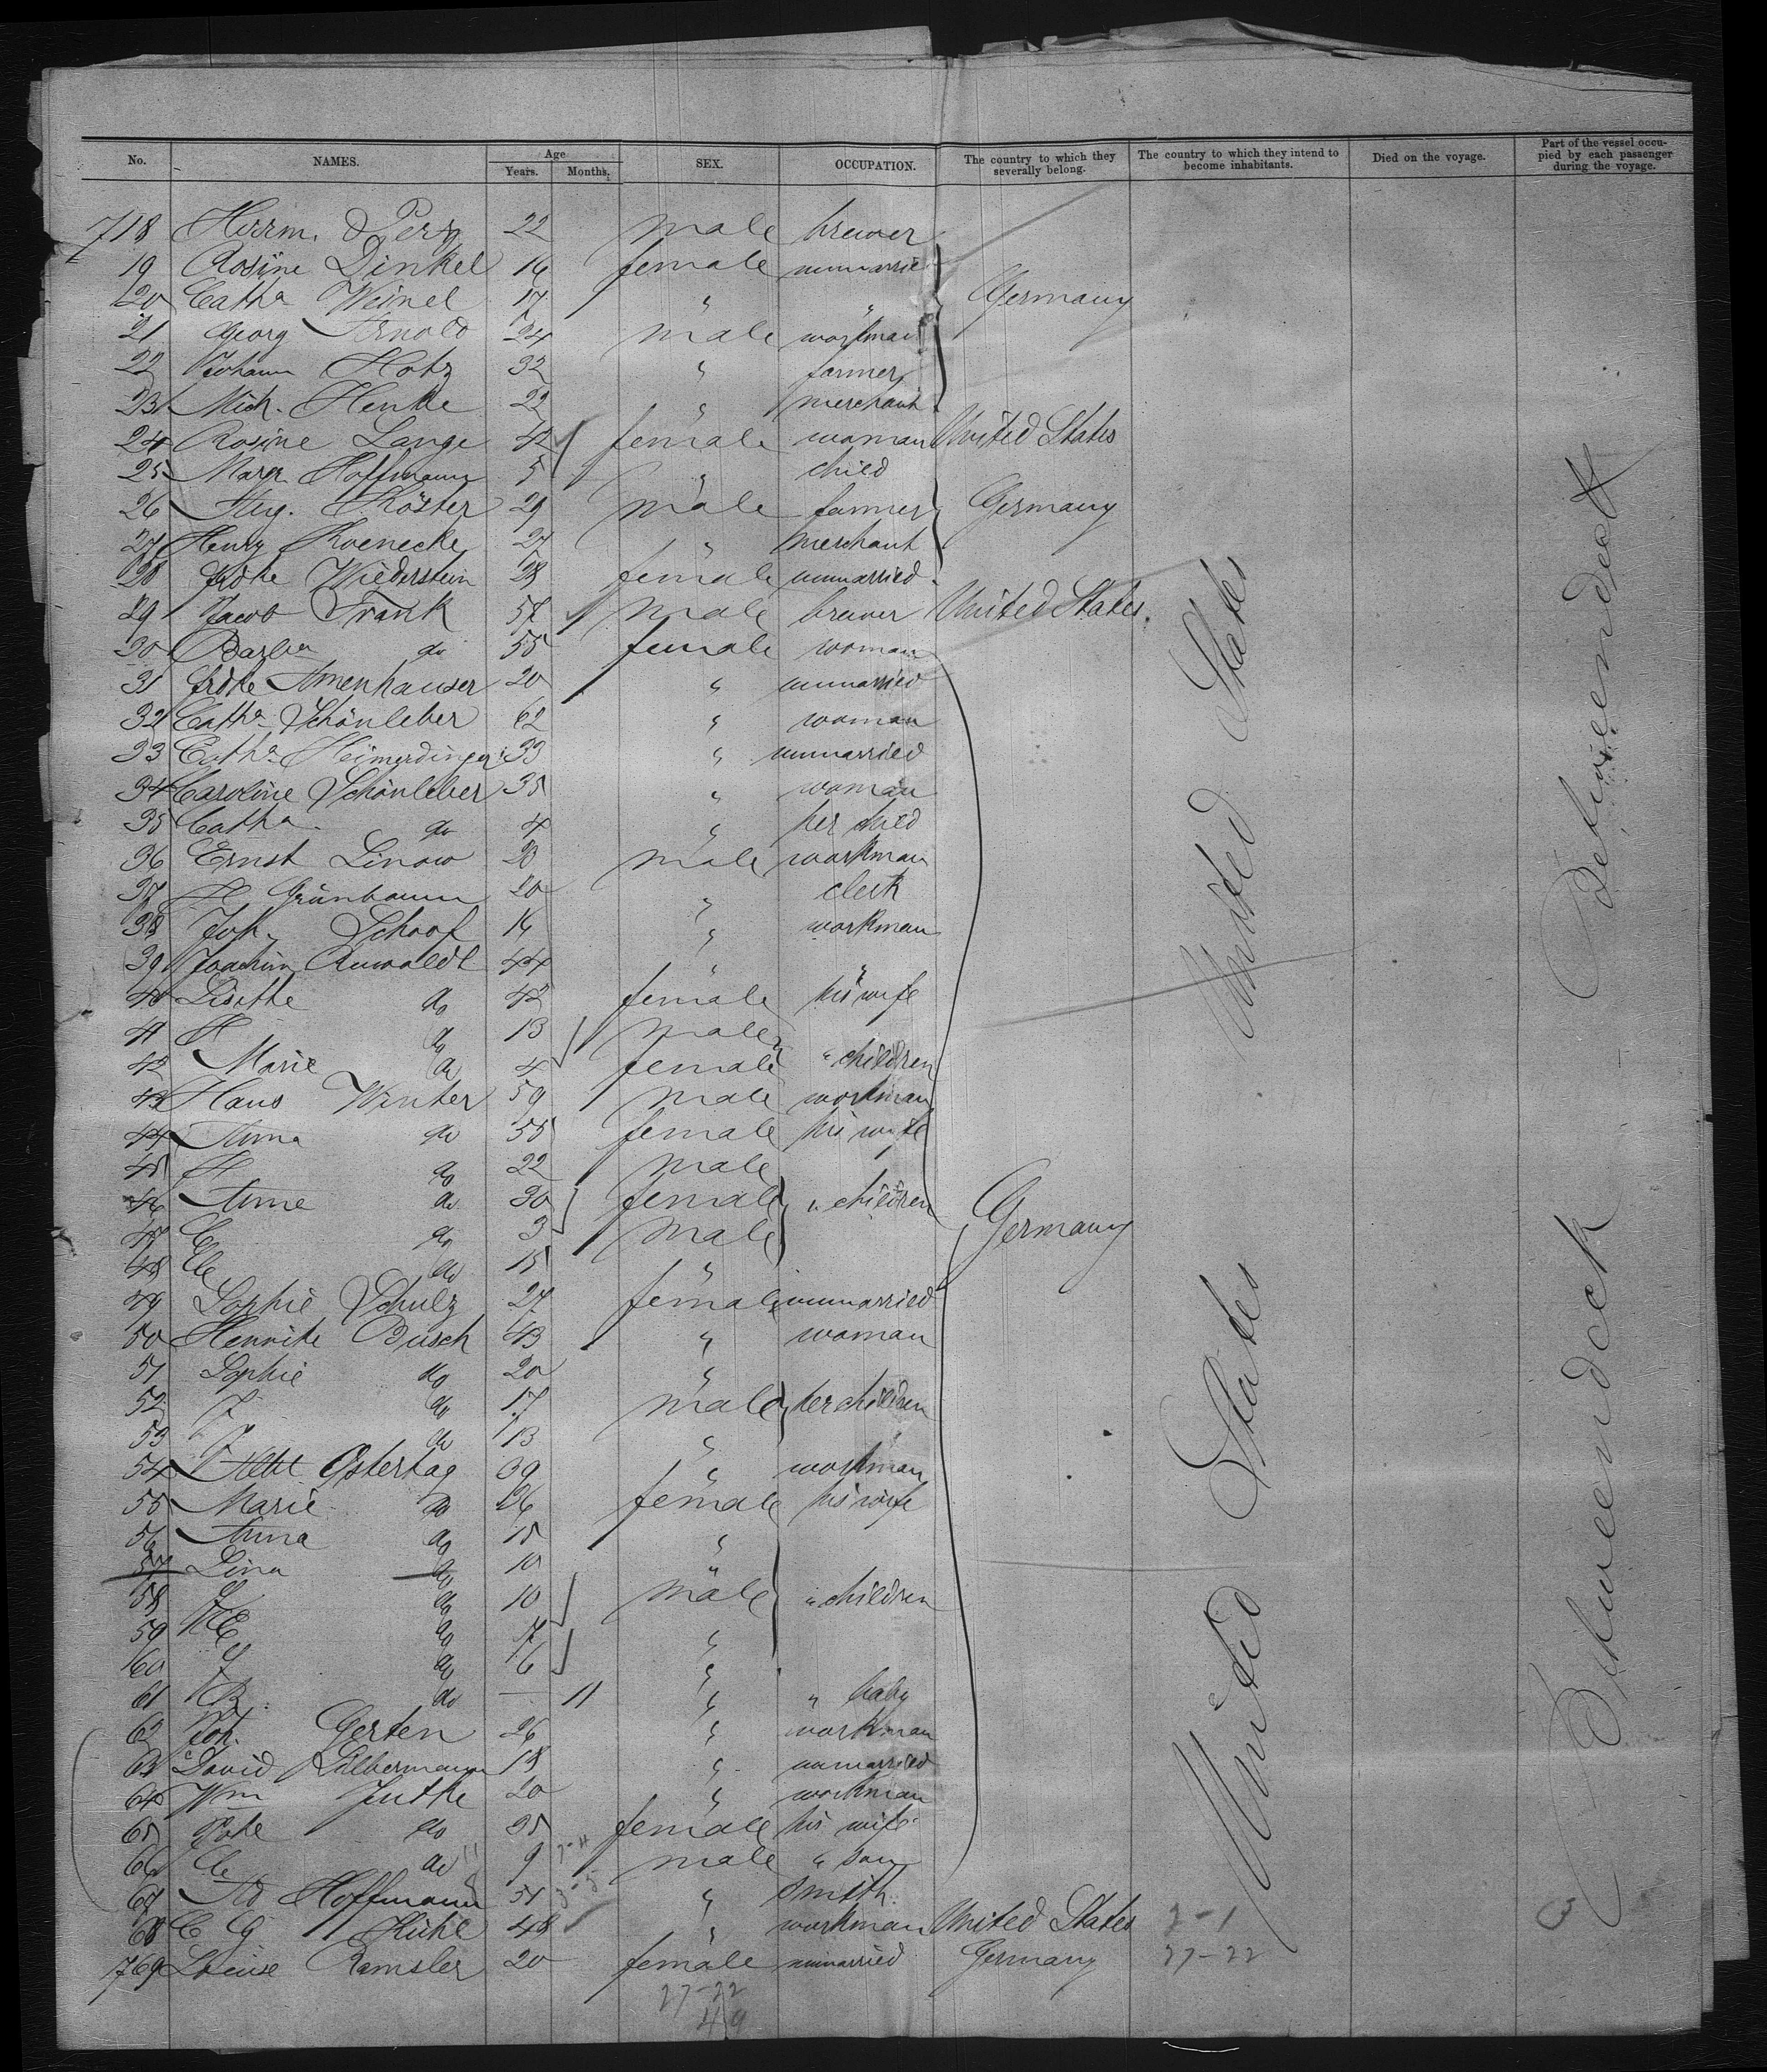 No. NAMES. Age Years. Months. SEX. OCCUPATION. The country to which they severally belong. The country to which they intend to become inhabitants. Died on the voyage. Part of the vessel occupied by each passenger during the voyage.
718 Herrm. 22 male brewer
19 Rosine Dinkel 16 female unmarried
20 Catha 17 " " Germany
21 Georg Arnold 24 male workman
22 Johann Hotz 32 " farmer
23 Mich. Henke 22 " merchant
24 Rosine Lange 42 female woman United States
25 Margr. Hoffmann 5 " child
26 Aug. Köster 29 male farmer Germany
27 Henry Koenecke 27 " merchant
28 Wiederstein 28 female unmarried
29 Jacob Frank 57 male brewer United States.
30 Barba do 55 female woman
31 Amenhauser 20 " unmarried
32 Catha Schönleber 62 " woman
33 Catha Heimerdinger 33 " unmarried
34 Caroline Schönleber 35 " woman
35 Catha do 4 " her child
36 Ernst Linow 28 male workman
37 H Grünbaum 20 " clerk
38 Joh. Schoof 16 " workman
39 Joachim Auwaldt 44 " "
40 Lisette do 42 female his wife
41 H do 13 male
42 Marie do 4 female " children
43 Hans Winter 59 male workman
44 Anna do 55 female his wife
45 H do 22 male
46 do 30 female " children
47 do 3 male Germany
48 do 15 "
49 Sophie Schulz 27 female unmarried
50 Busch 43 " woman
51 Sophie do 20 "
52 J do 17 male her children
53 J do 13 "
54 Albt Ostertag 39 " workman
55 Marie do 36 female his wife
56 Anna do 15 "
57 Lina do 10
58 do 10 male " children
59 do "
60 do 6 "
61 do — 11 " " baby
62 Joh. Gerten 26 " workman
63 David Silbermann 18 " unmarried
64 Wm Jutke 20 " workman
65 do 25 female his wife
66 do 9 male " son
67 Ad Hoffmann 51 " smith
68 C G Kühl 48 " workman United States 2-1
769 Louise Ramsler 20 female unmarried Germany 27-22
27-22
49
United States
United States
Betweendeck
Betweendeck